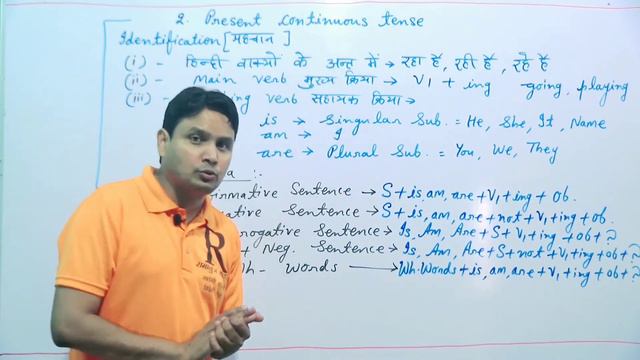 2. Present continuous tense
Identification [पहचान]
(i) - हिन्दी वाक्यों के अन्त में → रहा है, रही है, रहे हैं
(ii) - Main verb मुख्य क्रिया → V1 + ing - going, playing
(iii) - ing verb सहायक क्रिया →
is → Singular Sub. = He, She, It, Name
am → I
are → Plural Sub. = You, We, They
a :-
rmative Sentence → S + is, am, are + V1 + ing + ob.
ative Sentence → S + is, am, are + not + V1 + ing + ob.
rogative Sentence → Is, Am, Are + S + V1 + ing + ob + ?
+ Neg. Sentence → Is, Am, Are + S + not + V1 + ing + ob + ?
Wh - words → Wh. Words + is, am, are + V1 + ing + ob + ?
R